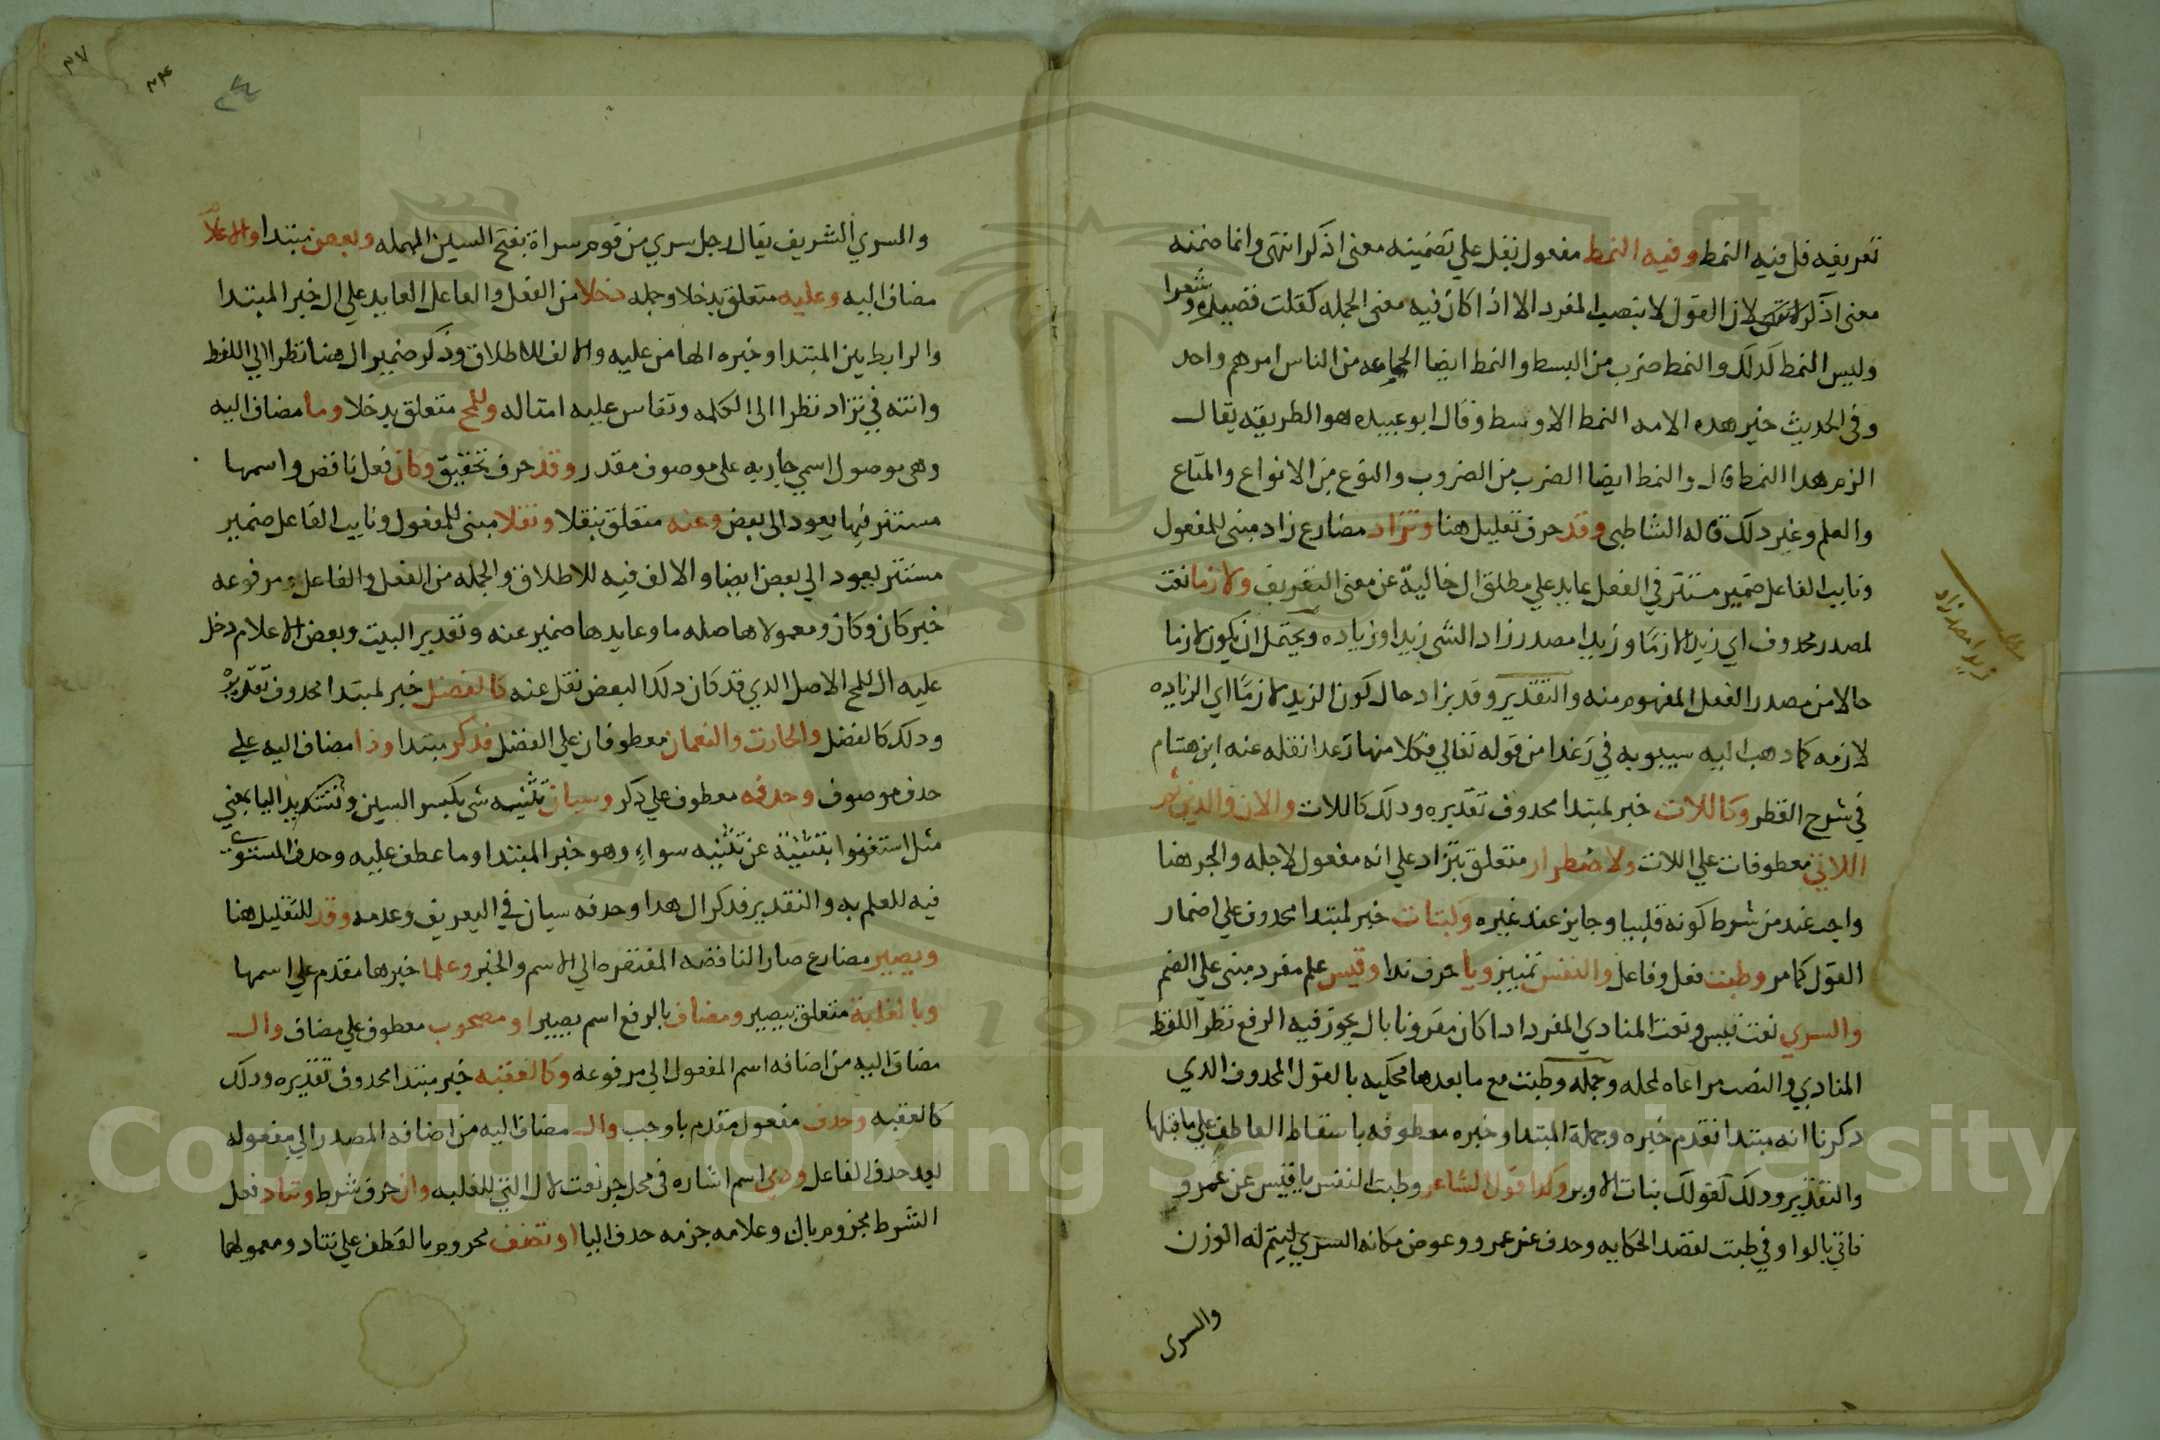 تعريفه قل فيه النمط وفيه النمط مفعول بقل علي تضمينه معنى اذكر انتهى وانما ضمنه
معنى اذكر لان القول لا ينصب المفرد الا اذا كان فيه معنى الجمله كقلت قصيده وشعرا
وليس النمط كذلك والنمط ضرب من البسط والنمط ايضا الجماعه من الناس امرهم واحد
وفي الحديث خير هده الامه النمط الاوسط وقال ابو عبيده هو الطريقه يقال
الزم هدا النمط قال والنمط ايضا الضرب من الضروب والنوع من الانواع والمتاع
والعلم وغير دلك قاله الشاطبي وقد حرف تقليل هنا وتزاد مضارع زاد مبنى للمفعول
ونايب الفاعل ضمير مستتر في الفعل عايد علي مطلق ال خالية عن معنى التعريف ولازما نعت
لمصدر محدوف اي زيدا لازمًا وزيدا مصدر زاد الشي زيدا وزياده ويحتمل ان يكون لازما
حالا من مصدر الفعل المفهوم منه والتقدير وقد يزاد حال كون الزيد لازمًا اي الزياده
لازمه كما دهب اليه سيبويه في رغدا من قوله تعالي فكلا منها رغدا نقله عنه ابن هشام
في شرح القطر وكاللات خبر لمبتدا محدوف تقديره ودلك كاللات والان والدين ثم
اللاتي معطوفات علي اللات ولاضطرار متعلق بتزاد علي انه مفعول لاجله والجر هنا
واجب عند من شرط كونه قلبيا وجايز عند غيره وكبنات خبر لمبتدا محدوف علي اضمار
القول كما مر وطبت فعل وفاعل والنفس تمييز ويا حرف ندا وقيس علم مفرد مبنى علي الضم
والسري نعت قيس ونعت المنادي المفرد ادا كان مقرونا بال يجوز فيه الرفع نظرا للفظ
المنادي والنصب مراعاه لمحله وجمله وطبت مع ما بعدها محكيه بالقول المحدوف الدي
دكرنا انه مبتدا تقدم خبره وجملة المبتدا وخبره معطوفه باسقاط العاطف علي ما قبلها
والتقدير ودلك كقولك بنات الاوبر وكدا قول الشاعر وطبت النفس يا قيس عن عمرو
فاتي بالواو في طبت لقصد الحكايه وحدف عن عمرو وعوض مكانه السري ليتم له الوزن
والسرى
زيدا مصدر زاد
والسري الشريف يقال رجل سري من قوم سراة بفتح السين المهمله وبعض مبتدا والاعلام
مضاف اليه وعليه متعلق بدخلا وجمله دخلا من الفعل والفاعل العايد علي ال خبر المبتدا
والرابط بين المبتدا وخبره الها من عليه والالف للاطلاق ودكر ضمير ال هنا نظرا الي اللفظ
وانثه في تزاد نظرا الى الكلمه وتقاس عليه امثاله وللمح متعلق بدخلا وما مضاف اليه
وهى موصول اسمي جاريه على موصوف مقدر وقد حرف تحقيق وكان فعل ناقص واسمها
مستتر فيها يعود الى بعض وعنه متعلق بنقلا ونقلا مبنى للمفعول ونايب الفاعل ضمير
مستتر يعود الي بعض ايضا والالف فيه للاطلاق والجمله من الفعل والفاعل ومرفوعه
خبر كان وكان ومعمولاها صله ما وعايدها ضمير عنه وتقدير البيت وبعض الاعلام دخل
عليه ال للمح الاصل الدي قد كان دلك البعض نقل عنه كالفضل خبر لمبتدا محدوف تقديره
ودلك كالفضل والحارث والنعمان معطوفان علي الفضل فدكر مبتدا وذا مضاف اليه علي
حدف موصوف وحدفه معطوف علي دكر وسيان تثنيه سي بكسر السين وتشديد اليا بمعني
مثل استغنوا بتثنيه عن تثنيه سواء وهو خبر المبتدا وما عطف عليه وحدف المستوي
فيه للعلم به والتقدير فدكر ال هدا وحدفه سيان في التعريف وعدمه وقد للتقليل هنا
ويصير مضارع صار الناقصه المفتقره الي الاسم والخبر وعلما خبرها مقدم علي اسمها
وبالغلبة متعلق بيصير ومضاف بالرفع اسم يصير او مصحوب معطوف علي مضاف وال
مضاف اليه من اضافه اسم المفعول الي مرفوعه وكالعقبه خبر مبتدا محدوف تقديره ودلك
كالعقبه وحدف مفعول مقدم باوجب وال مضاف اليه من اضافه المصدر الي مفعوله
بعد حدف الفاعل ودي اسم اشاره في محل جر نعت لال التي للغلبه وان حرف شرط وتناد فعل
الشرط مجزوم بان وعلامه جزمه حدف اليا او تضف مجزوم بالعطف علي تناد ومعمولهما